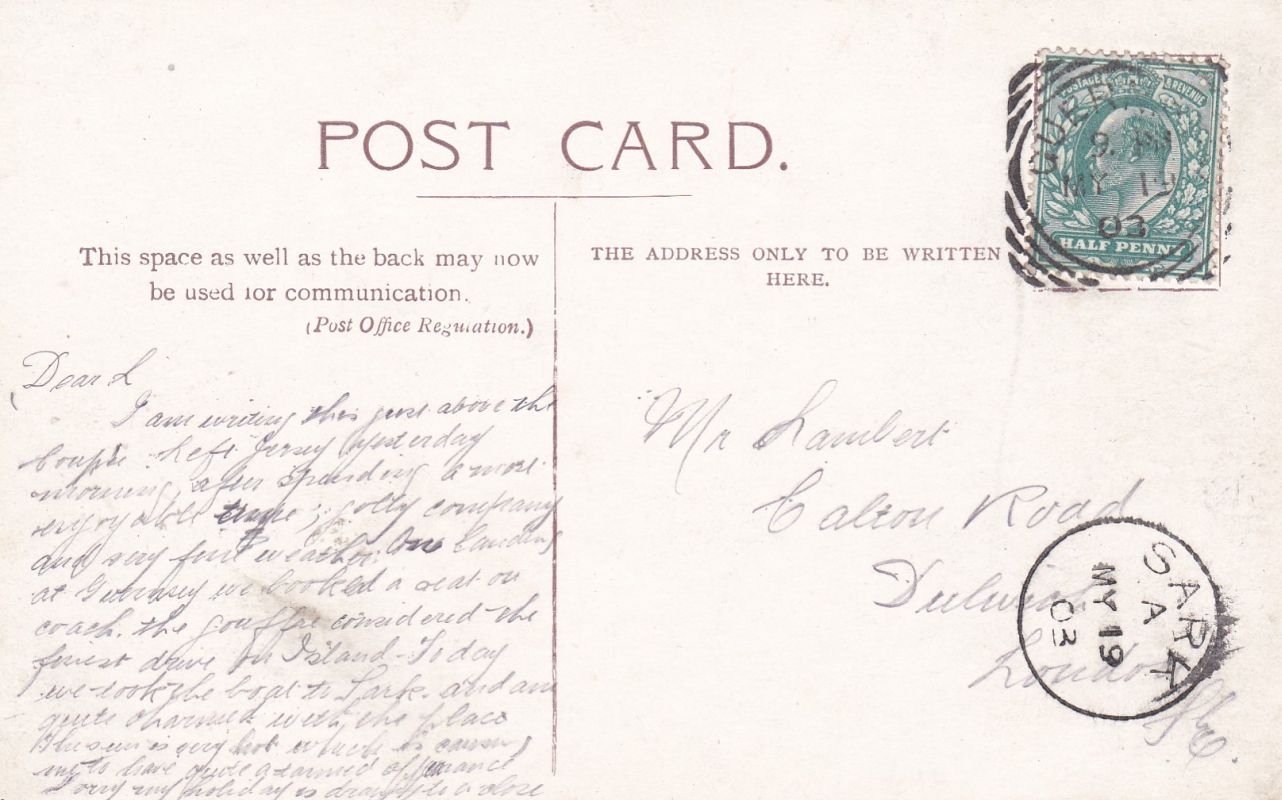 POST CARD.
This space as well as the back may now
be used for communication.
(Post Office Regulation.)
THE ADDRESS ONLY TO BE WRITTEN
HERE.
POSTAGE & REVENUE
HALF PENNY
GUERN
MY 19
03
Dear L
I am writing this just above the
Coupée. Left Jersey yesterday
morning, after spending a most
enjoyable time, jolly company
and very fine weather. On landing
at Guernsey we booked a seat on
coach. the gouffre considered the
finest drive on Island - Today
we took the boat to Sark. and am
quite charmed with the place
The sun is very hot which is causing
me to have quite a tanned appearance
Sorry my holiday is drawing to a close
Mr Lambert
Calton Road
Dulwich
London
SE.
SARK
A
MY 19
03